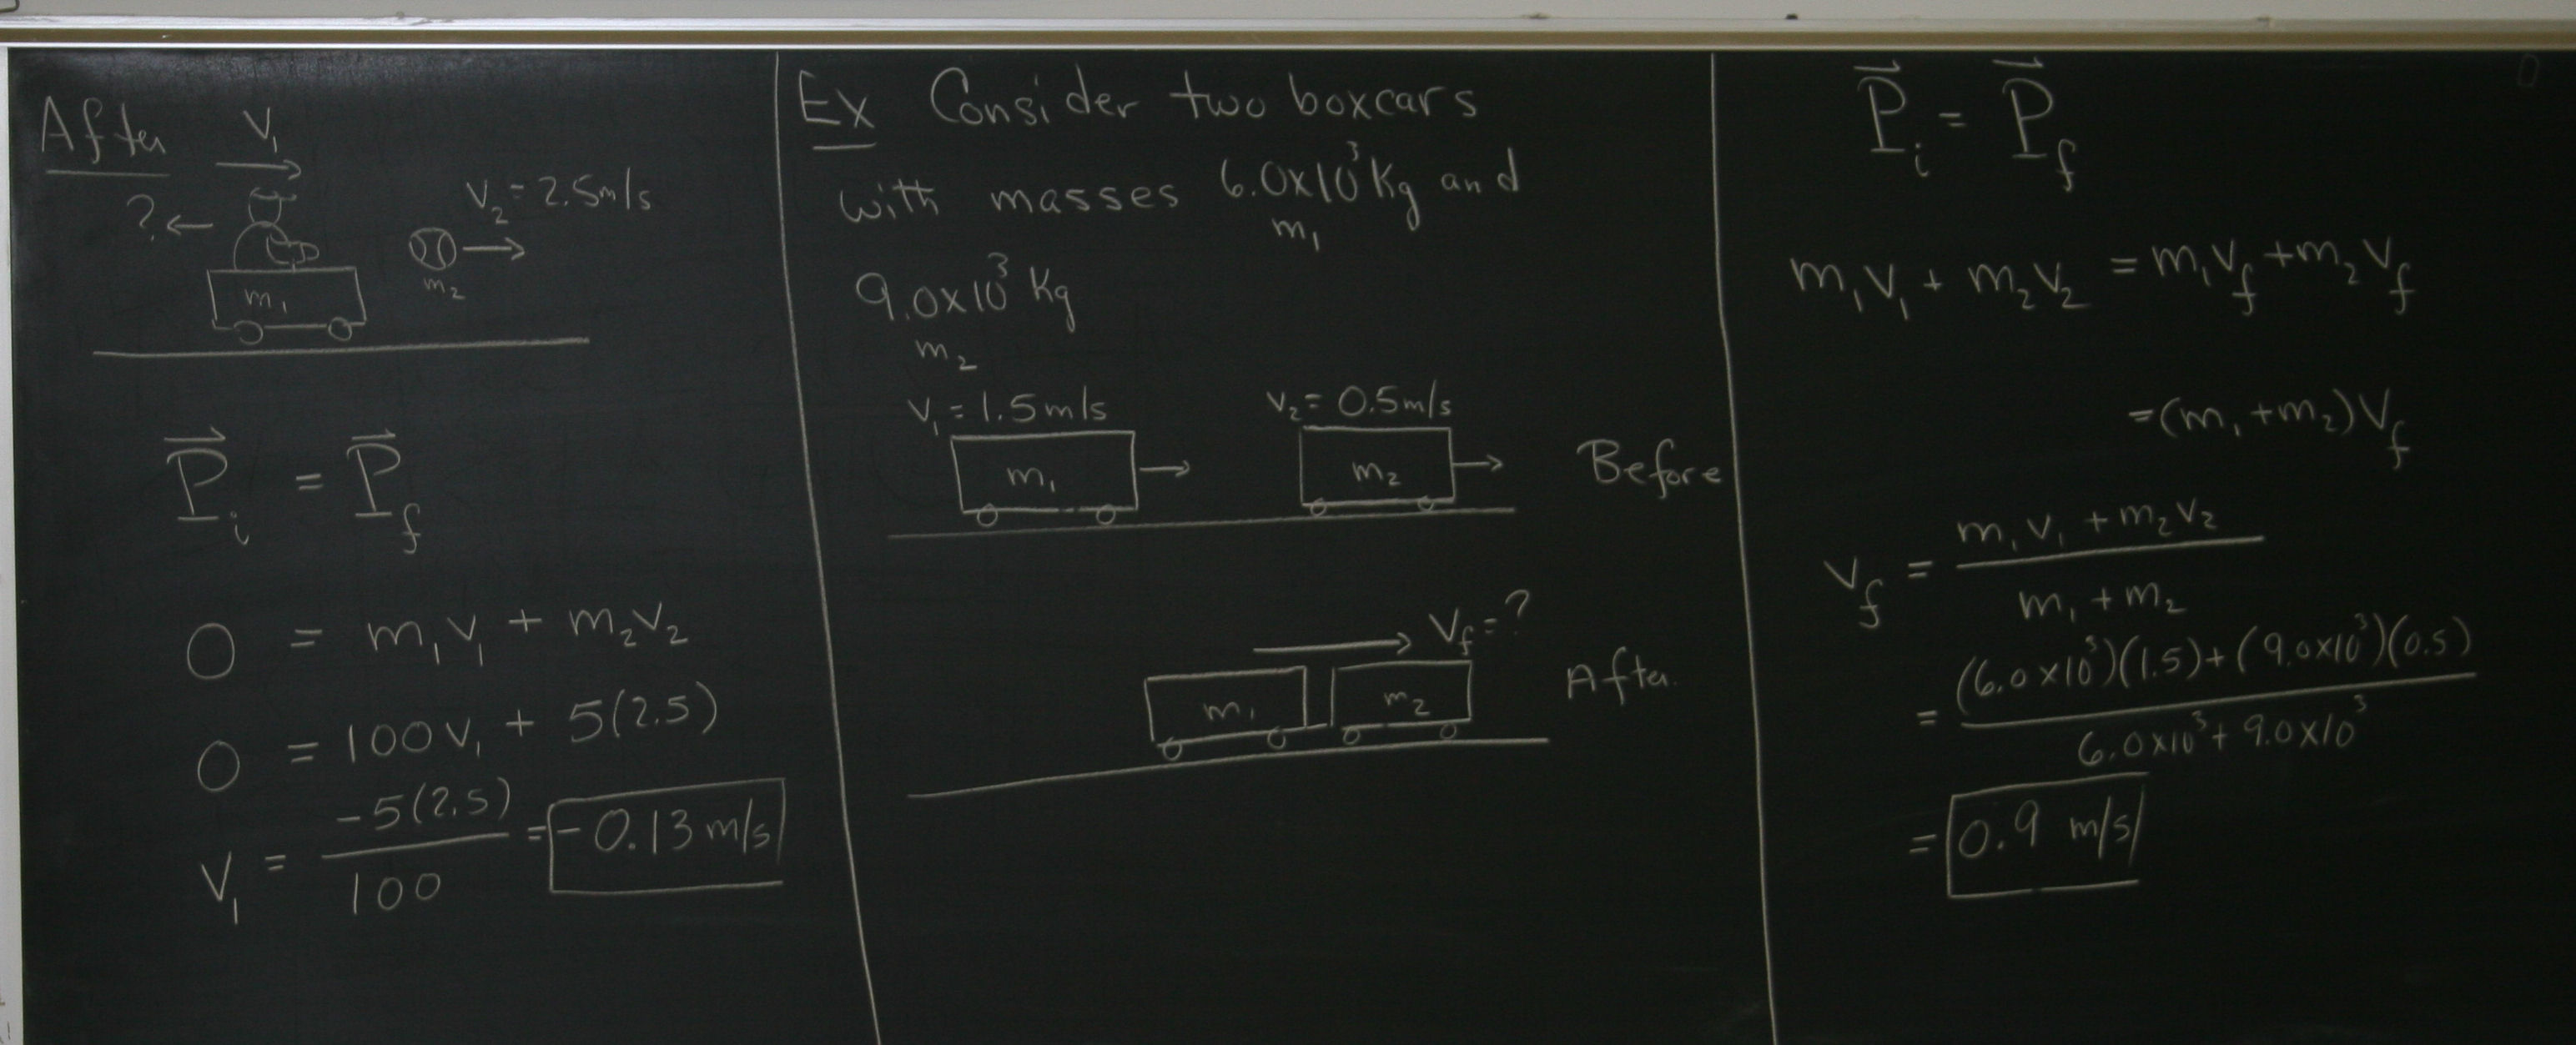 After
V₁
?←
V₂ = 2.5 m/s
m₁
m₂
P⃗ᵢ = P⃗f
0 = m₁v₁ + m₂v₂
0 = 100v₁ + 5(2.5)
V₁ = -5(2.5)/100 = -0.13 m/s
Ex Consider two boxcars
with masses 6.0x10³ Kg and
m₁
9.0x10³ Kg
m₂
V₁ = 1.5 m/s
V₂ = 0.5 m/s
m₁
m₂
Before
Vf = ?
m₁
m₂
After
P⃗ᵢ = P⃗f
m₁v₁ + m₂v₂ = m₁vf + m₂vf
= (m₁ + m₂)Vf
Vf = m₁v₁ + m₂v₂ / m₁ + m₂
= (6.0x10³)(1.5) + (9.0x10³)(0.5) / 6.0x10³ + 9.0x10³
= 0.9 m/s